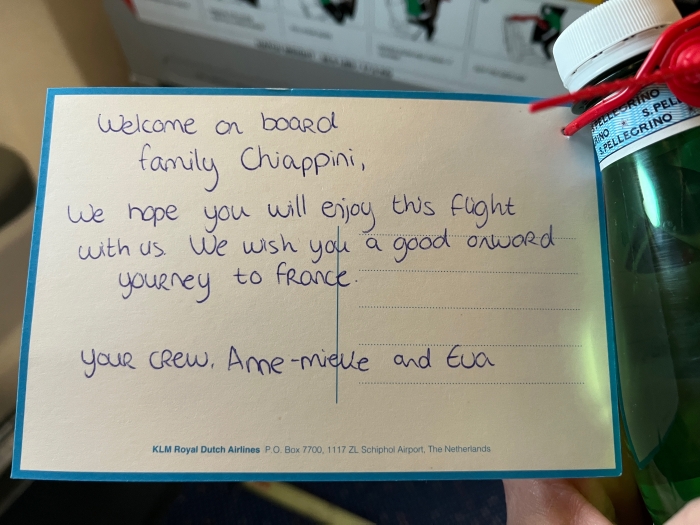 Welcome on board
family Chiappini,
We hope you will enjoy this flight
with us. We wish you a good onword
yourney to france.
your crew, Anne-mieke and Eva
KLM Royal Dutch Airlines P.O. Box 7700, 1117 ZL Schiphol Airport, The Netherlands
S.PELLEGRINO